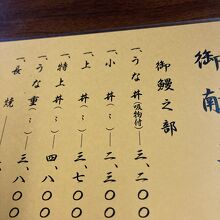 御
御鰻之部
一、うな丼(吸物付)三、二〇〇
一、小丼(〃)二、三〇〇
一、上丼(〃)三、七〇〇
一、特上丼(〃)四、八〇〇
一、うな重(〃)三、八〇〇
一、長焼